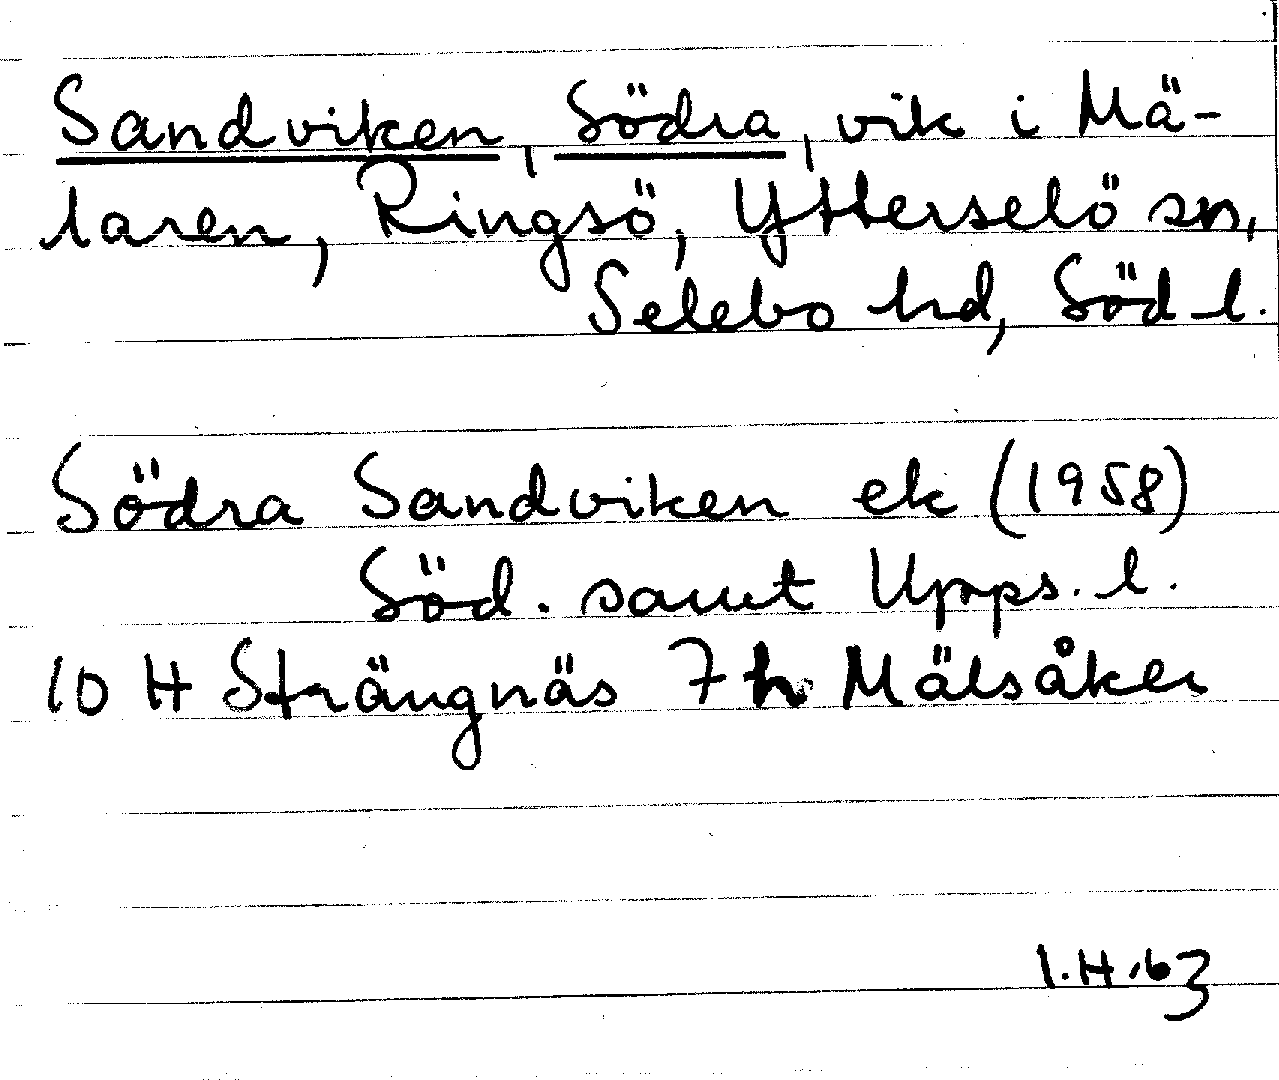 Sandviken, Södra, vik i Mä-
laren, Ringsö, Ytterselö sn,
Selebo hd, Söd l.
Södra Sandviken ek (1958)
Söd. samt Upps. l.
10 H Strängnäs 7 h Mälsåker
I.H.63